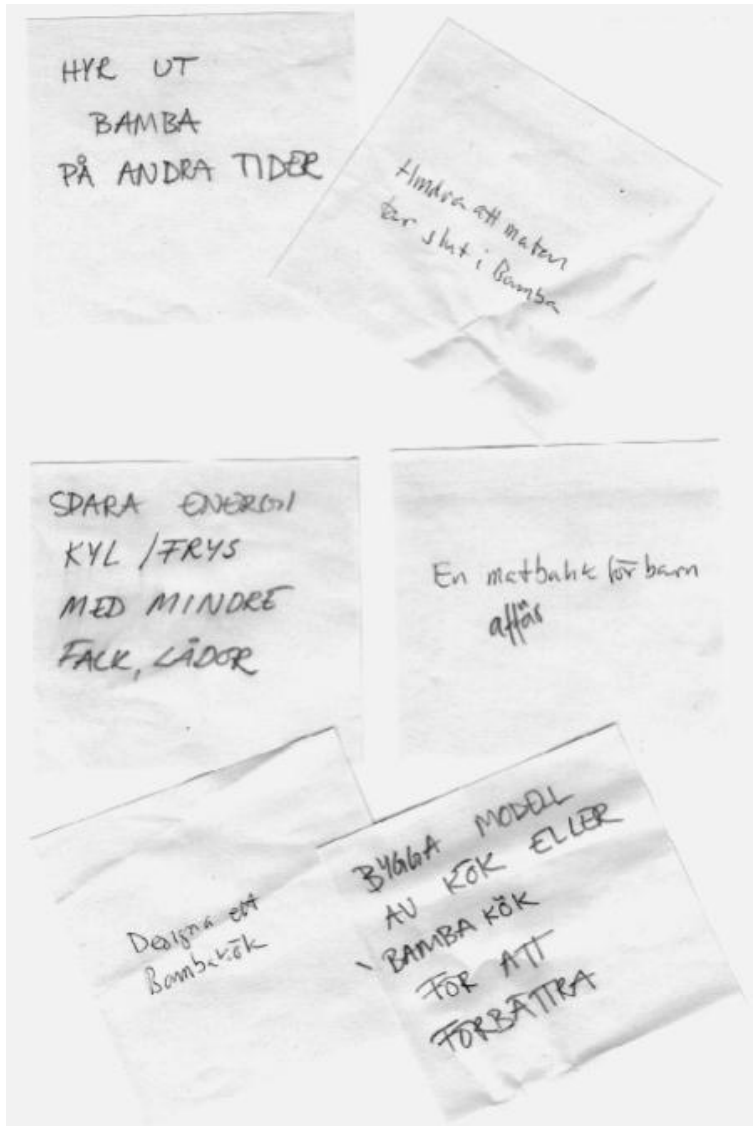 HYR UT
BAMBA
PÅ ANDRA TIDER
Hindra att maten
tar slut i Bamba
SPARA ENERGI
KYL / FRYS
MED MINDRE
FACK, LÅDOR
En matbutik för barn
affär
Designa ett
Bambakök
BYGGA MODELL
AV KÖK ELLER
BAMBA KÖK
FÖR ATT
FÖRBÄTTRA